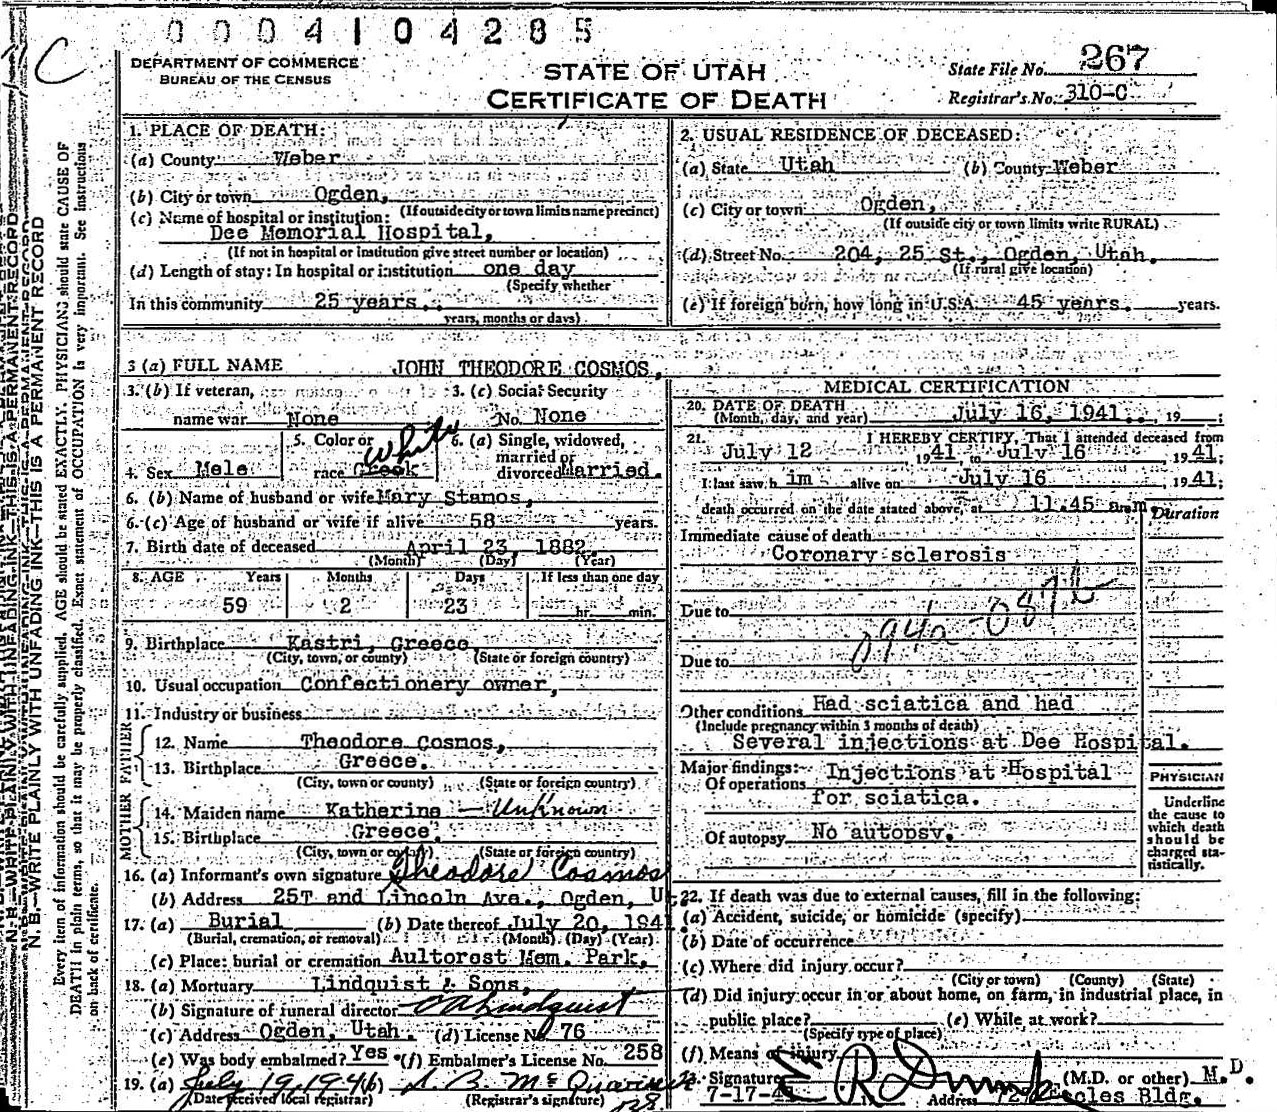 0004104285
C
DEPARTMENT OF COMMERCE
BUREAU OF THE CENSUS
STATE OF UTAH
CERTIFICATE OF DEATH
State File No. 267
Registrar's No. 310-C
N. B.—WRITE PLAINLY WITH UNFADING INK—THIS IS A PERMANENT RECORD
Every item of information should be carefully supplied. AGE should be stated EXACTLY. PHYSICIANS should state CAUSE OF
DEATH in plain terms, so that it may be properly classified. Exact statement of OCCUPATION is very important. See instructions
on back of certificate.
1. PLACE OF DEATH:
(a) County Weber
(b) City or town Ogden,
(If outside city or town limits name precinct)
(c) Name of hospital or institution:
Dee Memorial Hospital,
(If not in hospital or institution give street number or location)
(d) Length of stay: In hospital or institution one day
(Specify whether
In this community 25 years.
years, months or days)
2. USUAL RESIDENCE OF DECEASED:
(a) State Utah (b) County Weber
(c) City or town Ogden,
(If outside city or town limits write RURAL)
(d) Street No. 204, 25 St., Ogden, Utah.
(If rural give location)
(e) If foreign born, how long in U.S.A. 45 years. years.
3 (a) FULL NAME JOHN THEODORE COSMOS,
3. (b) If veteran, name war None
3. (c) Social Security No. None
4. Sex Male
5. Color or race Greek white
6. (a) Single, widowed, married or divorced Married.
6. (b) Name of husband or wife Mary Stamos,
6. (c) Age of husband or wife if alive 58 years.
7. Birth date of deceased April 23, 1882
(Month) (Day) (Year)
8. AGE Years Months Days If less than one day
59 2 23 hr. min.
9. Birthplace Kastri, Greece
(City, town, or county) (State or foreign country)
10. Usual occupation Confectionery owner,
11. Industry or business
FATHER
12. Name Theodore Cosmos,
13. Birthplace Greece.
(City, town or county) (State or foreign country)
MOTHER
14. Maiden name Katherine — Unknown
15. Birthplace Greece.
(City, town or county) (State or foreign country)
16. (a) Informant's own signature Theodore Cosmos
(b) Address 25T and Lincoln Ave., Ogden, Ut
17. (a) Burial (b) Date thereof July 20, 1941
(Burial, cremation, or removal) (Month) (Day) (Year)
(c) Place: burial or cremation Aultorest Mem. Park,
18. (a) Mortuary Lindquist & Sons,
(b) Signature of funeral director O A Lindquist
(c) Address Ogden, Utah. (d) License No 76
(e) Was body embalmed? Yes. (f) Embalmer's License No. 258
19. (a) July 19, 1941 (b)
(Date received local registrar) (Registrar's signature)
MEDICAL CERTIFICATION
20. DATE OF DEATH
(Month, day, and year) July 16, 1941.. , 19 ;
21. I HEREBY CERTIFY, That I attended deceased from
July 12 , 1941, to July 16 , 1941;
I last saw him alive on July 16 , 1941;
death occurred on the date stated above, at 11.45 a.m.
Duration
Immediate cause of death
Coronary sclerosis
Due to
094a
Due to
Other conditions Had sciatica and had
(Include pregnancy within 3 months of death)
Several injections at Dee Hospital.
Major findings:
Of operations Injections at Hospital
for sciatica.
Of autopsy No autopsy.
PHYSICIAN
Underline
the cause to
which death
should be
charged sta-
tistically.
22. If death was due to external causes, fill in the following:
(a) Accident, suicide, or homicide (specify)
(b) Date of occurrence
(c) Where did injury occur?
(City or town) (County) (State)
(d) Did injury occur in or about home, on farm, in industrial place, in
public place? (e) While at work?
(Specify type of place)
(f) Means of injury
Signature (M.D. or other) M.D.
7-17-4 Address Eccles Bldg.